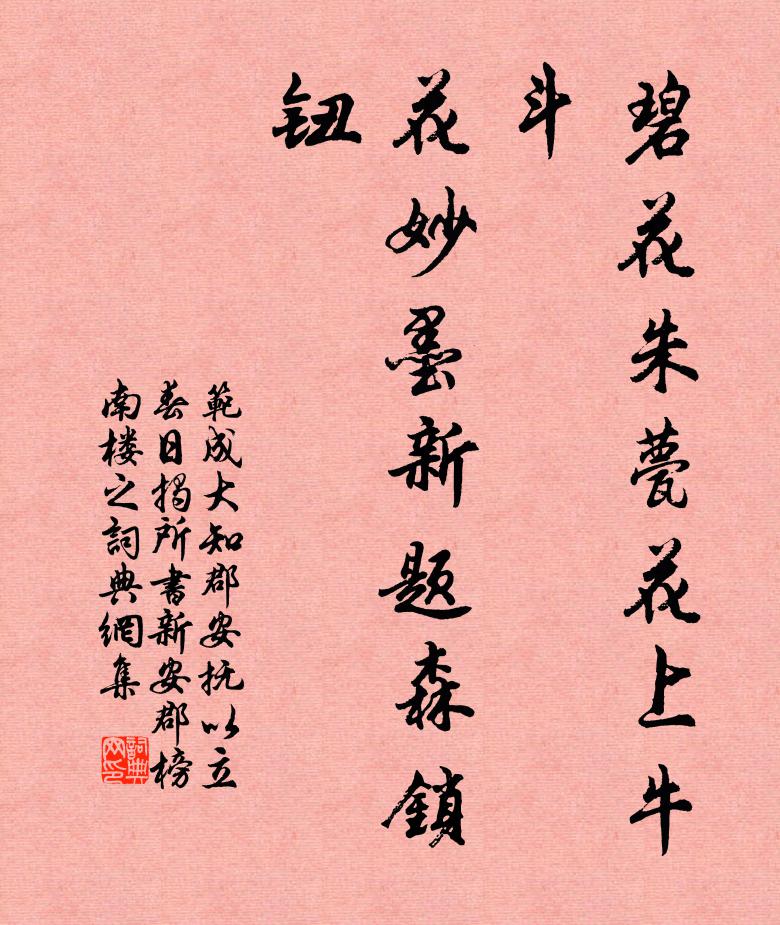 碧花朱甍花上牛
斗
花妙墨新题森鎖
鈕
範成大知郡安抚以立
春日揭所書新安郡榜
南楼之詞典網集
詞典网印